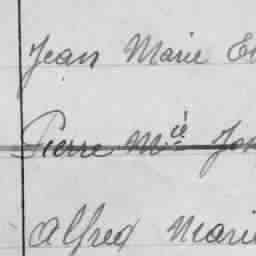 Jean Marie
Pierre Mie
Alfred Marie